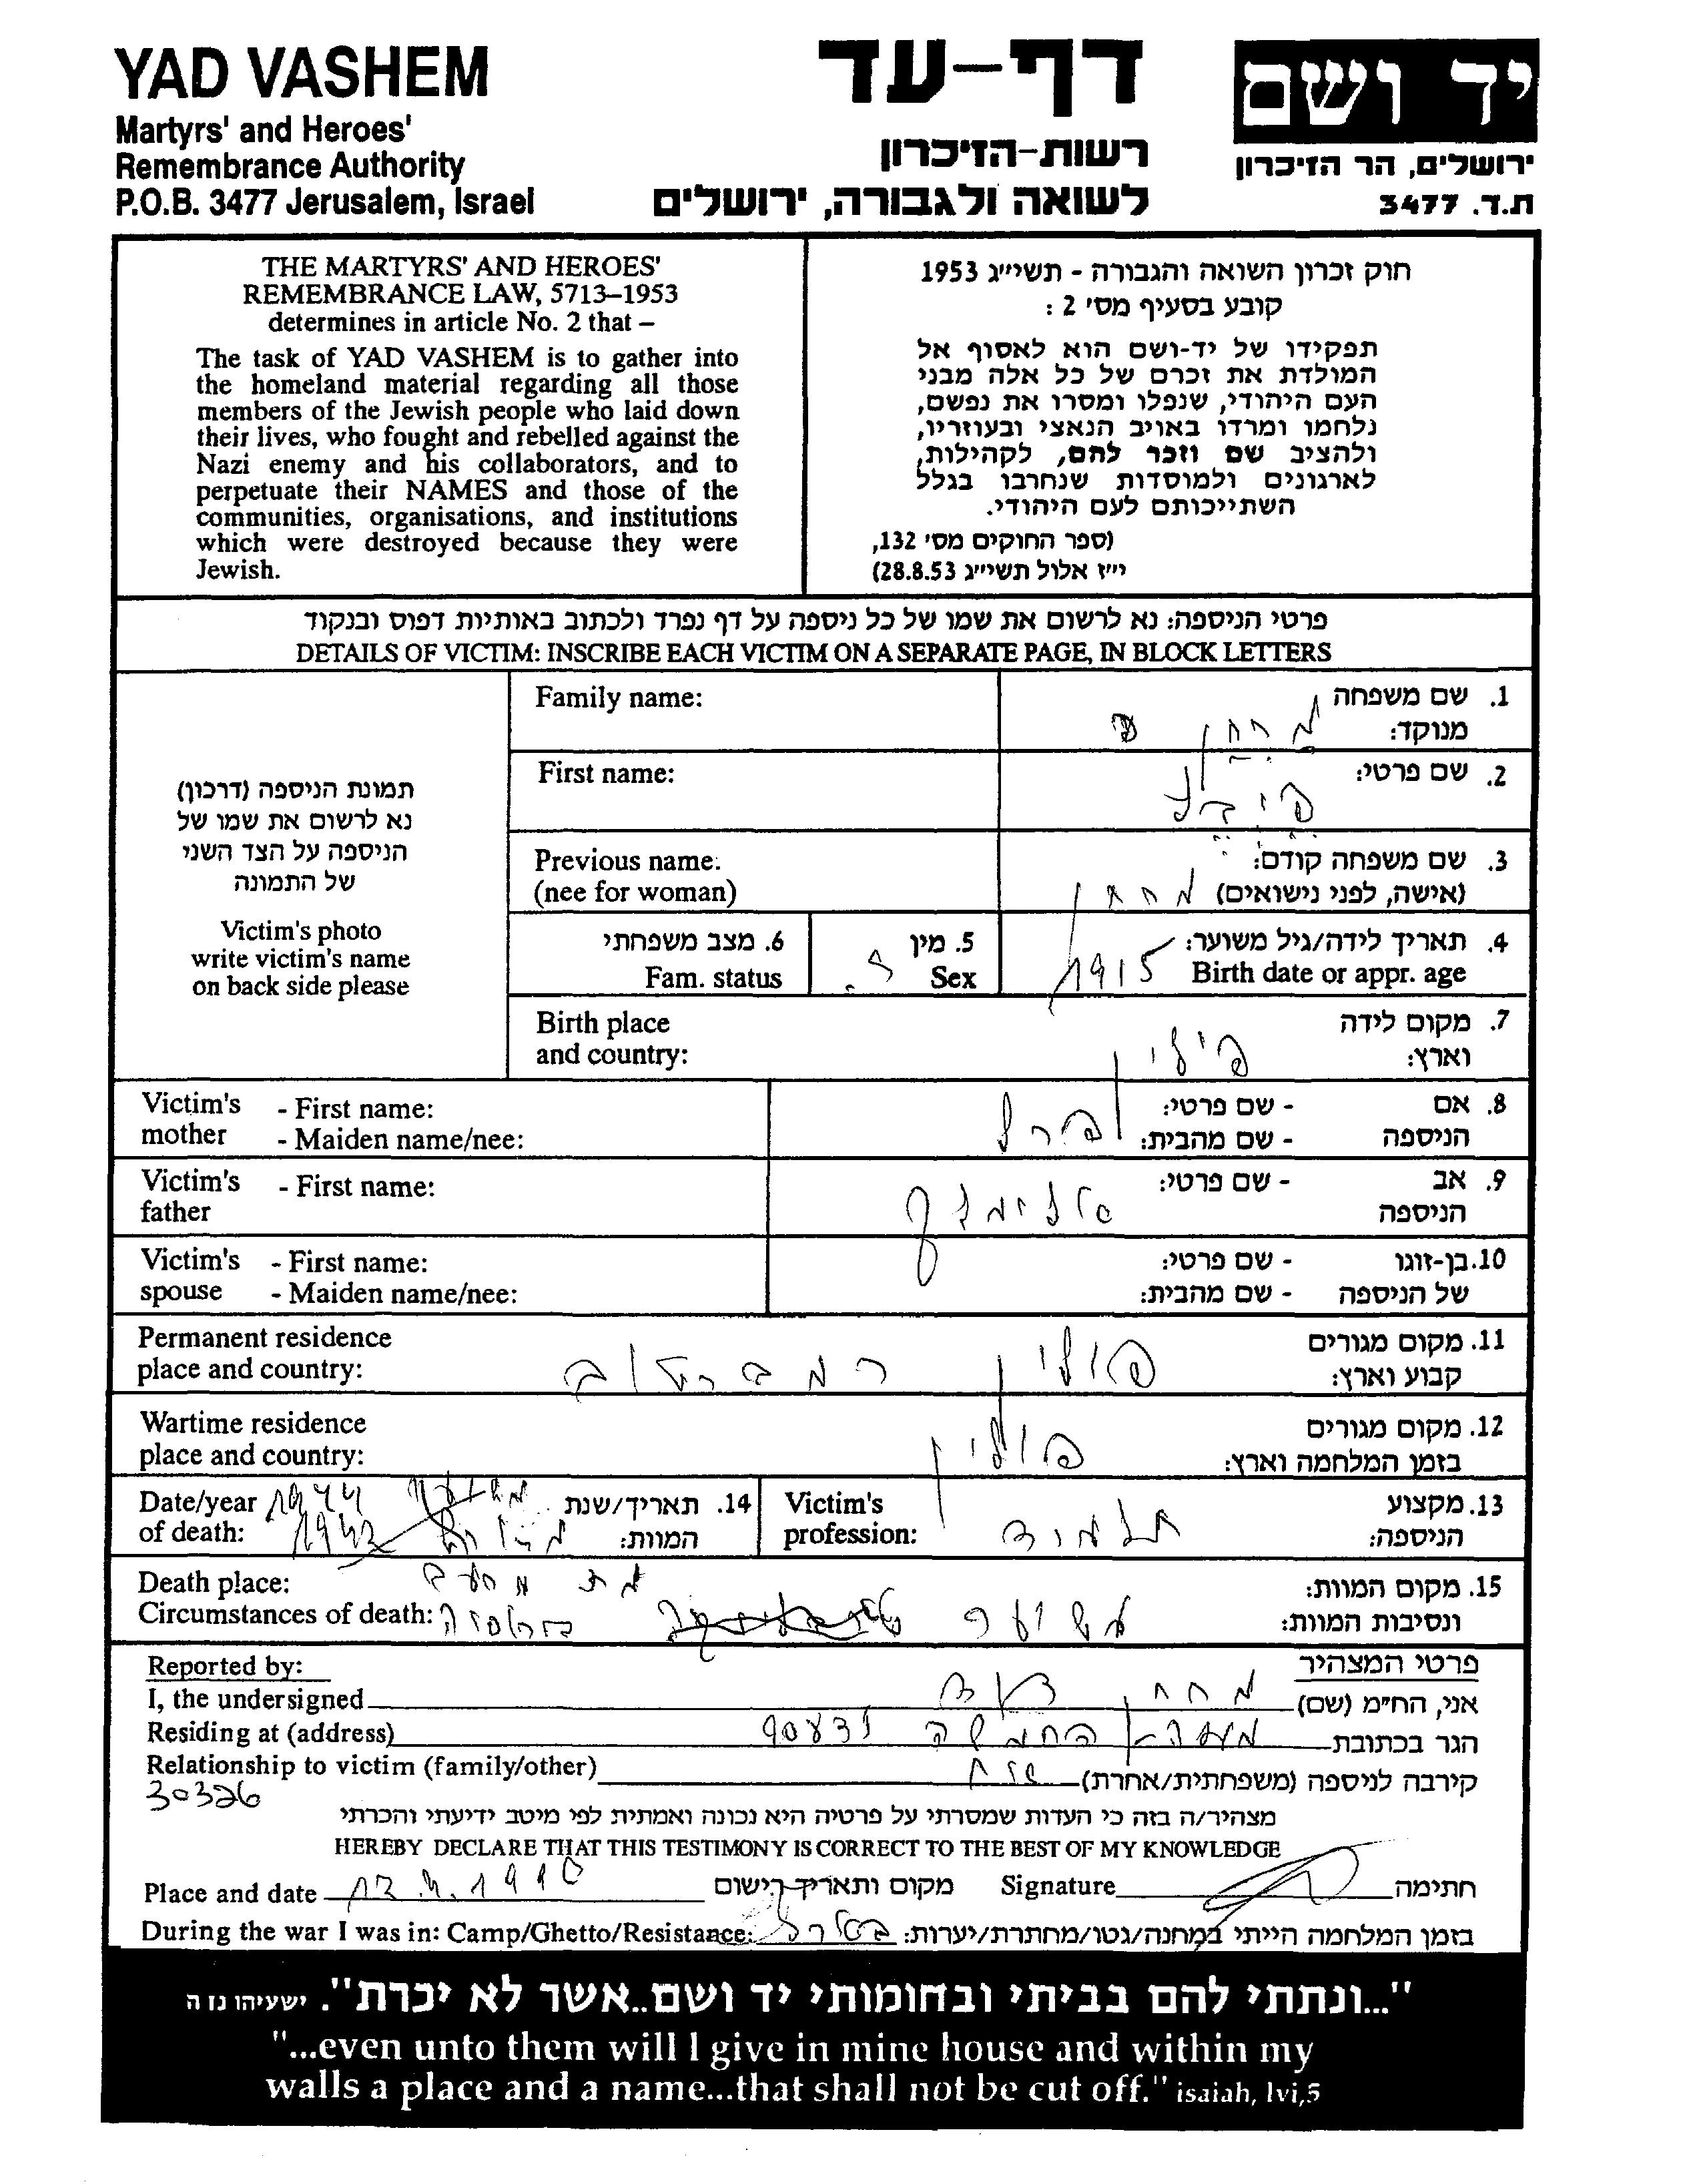 YAD VASHEM
Martyrs' and Heroes'
Remembrance Authority
P.O.B. 3477 Jerusalem, Israel
דף-עד
רשות-הזיכרון
לשואה ולגבורה, ירושלים
יד ושם
ירושלים, הר הזיכרון
ת.ד. 3477
THE MARTYRS' AND HEROES'
REMEMBRANCE LAW, 5713–1953
determines in article No. 2 that –
The task of YAD VASHEM is to gather into
the homeland material regarding all those
members of the Jewish people who laid down
their lives, who fought and rebelled against the
Nazi enemy and his collaborators, and to
perpetuate their NAMES and those of the
communities, organisations, and institutions
which were destroyed because they were
Jewish.
חוק זכרון השואה והגבורה - תשי״ג 1953
קובע בסעיף מס׳ 2 :
תפקידו של יד-ושם הוא לאסוף אל
המולדת את זכרם של כל אלה מבני
העם היהודי, שנפלו ומסרו את נפשם,
נלחמו ומרדו באויב הנאצי ובעוזריו,
ולהציב שם וזכר להם, לקהילות,
לארגונים ולמוסדות שנחרבו בגלל
השתייכותם לעם היהודי.
(ספר החוקים מס׳ 132,
י״ז אלול תשי״ג 28.8.53)
פרטי הניספה: נא לרשום את שמו של כל ניספה על דף נפרד ולכתוב באותיות דפוס ובנקוד
DETAILS OF VICTIM: INSCRIBE EACH VICTIM ON A SEPARATE PAGE, IN BLOCK LETTERS
תמונת הניספה (דרכון)
נא לרשום את שמו של
הניספה על הצד השני
של התמונה
Victim's photo
write victim's name
on back side please
Family name:
1. שם משפחה
מנוקד:
First name:
2. שם פרטי:
Previous name:
(nee for woman)
3. שם משפחה קודם:
(אישה, לפני נישואים)
6. מצב משפחתי
Fam. status
5. מין
Sex
4. תאריך לידה/גיל משוער: 1915
Birth date or appr. age
Birth place
and country:
7. מקום לידה
וארץ: פולין
Victim's mother - First name:
- Maiden name/nee:
8. אם הניספה - שם פרטי:
- שם מהבית:
Victim's father - First name:
9. אב הניספה - שם פרטי:
Victim's spouse - First name:
- Maiden name/nee:
10. בן-זוגו של הניספה - שם פרטי:
- שם מהבית:
Permanent residence
place and country:
11. מקום מגורים
קבוע וארץ: פולין
Wartime residence
place and country:
12. מקום מגורים
בזמן המלחמה וארץ: פולין
Date/year
of death:
14. תאריך/שנת
המוות: 1944
1942
Victim's
profession:
13. מקצוע
הניספה:
Death place:
Circumstances of death:
15. מקום המוות:
ונסיבות המוות:
Reported by:
פרטי המצהיר
I, the undersigned
אני, הח״מ (שם)
Residing at (address)
הגר בכתובת מעלה החמשה 90835
Relationship to victim (family/other)
קירבה לניספה (משפחתית/אחרת) אח
30326
מצהיר/ה בזה כי העדות שמסרתי על פרטיה היא נכונה ואמתית לפי מיטב ידיעתי והכרתי
HEREBY DECLARE THAT THIS TESTIMONY IS CORRECT TO THE BEST OF MY KNOWLEDGE
Place and date
מקום ותאריך רישום
Signature
חתימה
During the war I was in: Camp/Ghetto/Resistance:
בזמן המלחמה הייתי במחנה/גטו/מחתרת/יערות:
"...ונתתי להם בביתי ובחומותי יד ושם..אשר לא יכרת". ישעיהו נו ה
"...even unto them will I give in mine house and within my
walls a place and a name...that shall not be cut off." isaiah, lvi,5